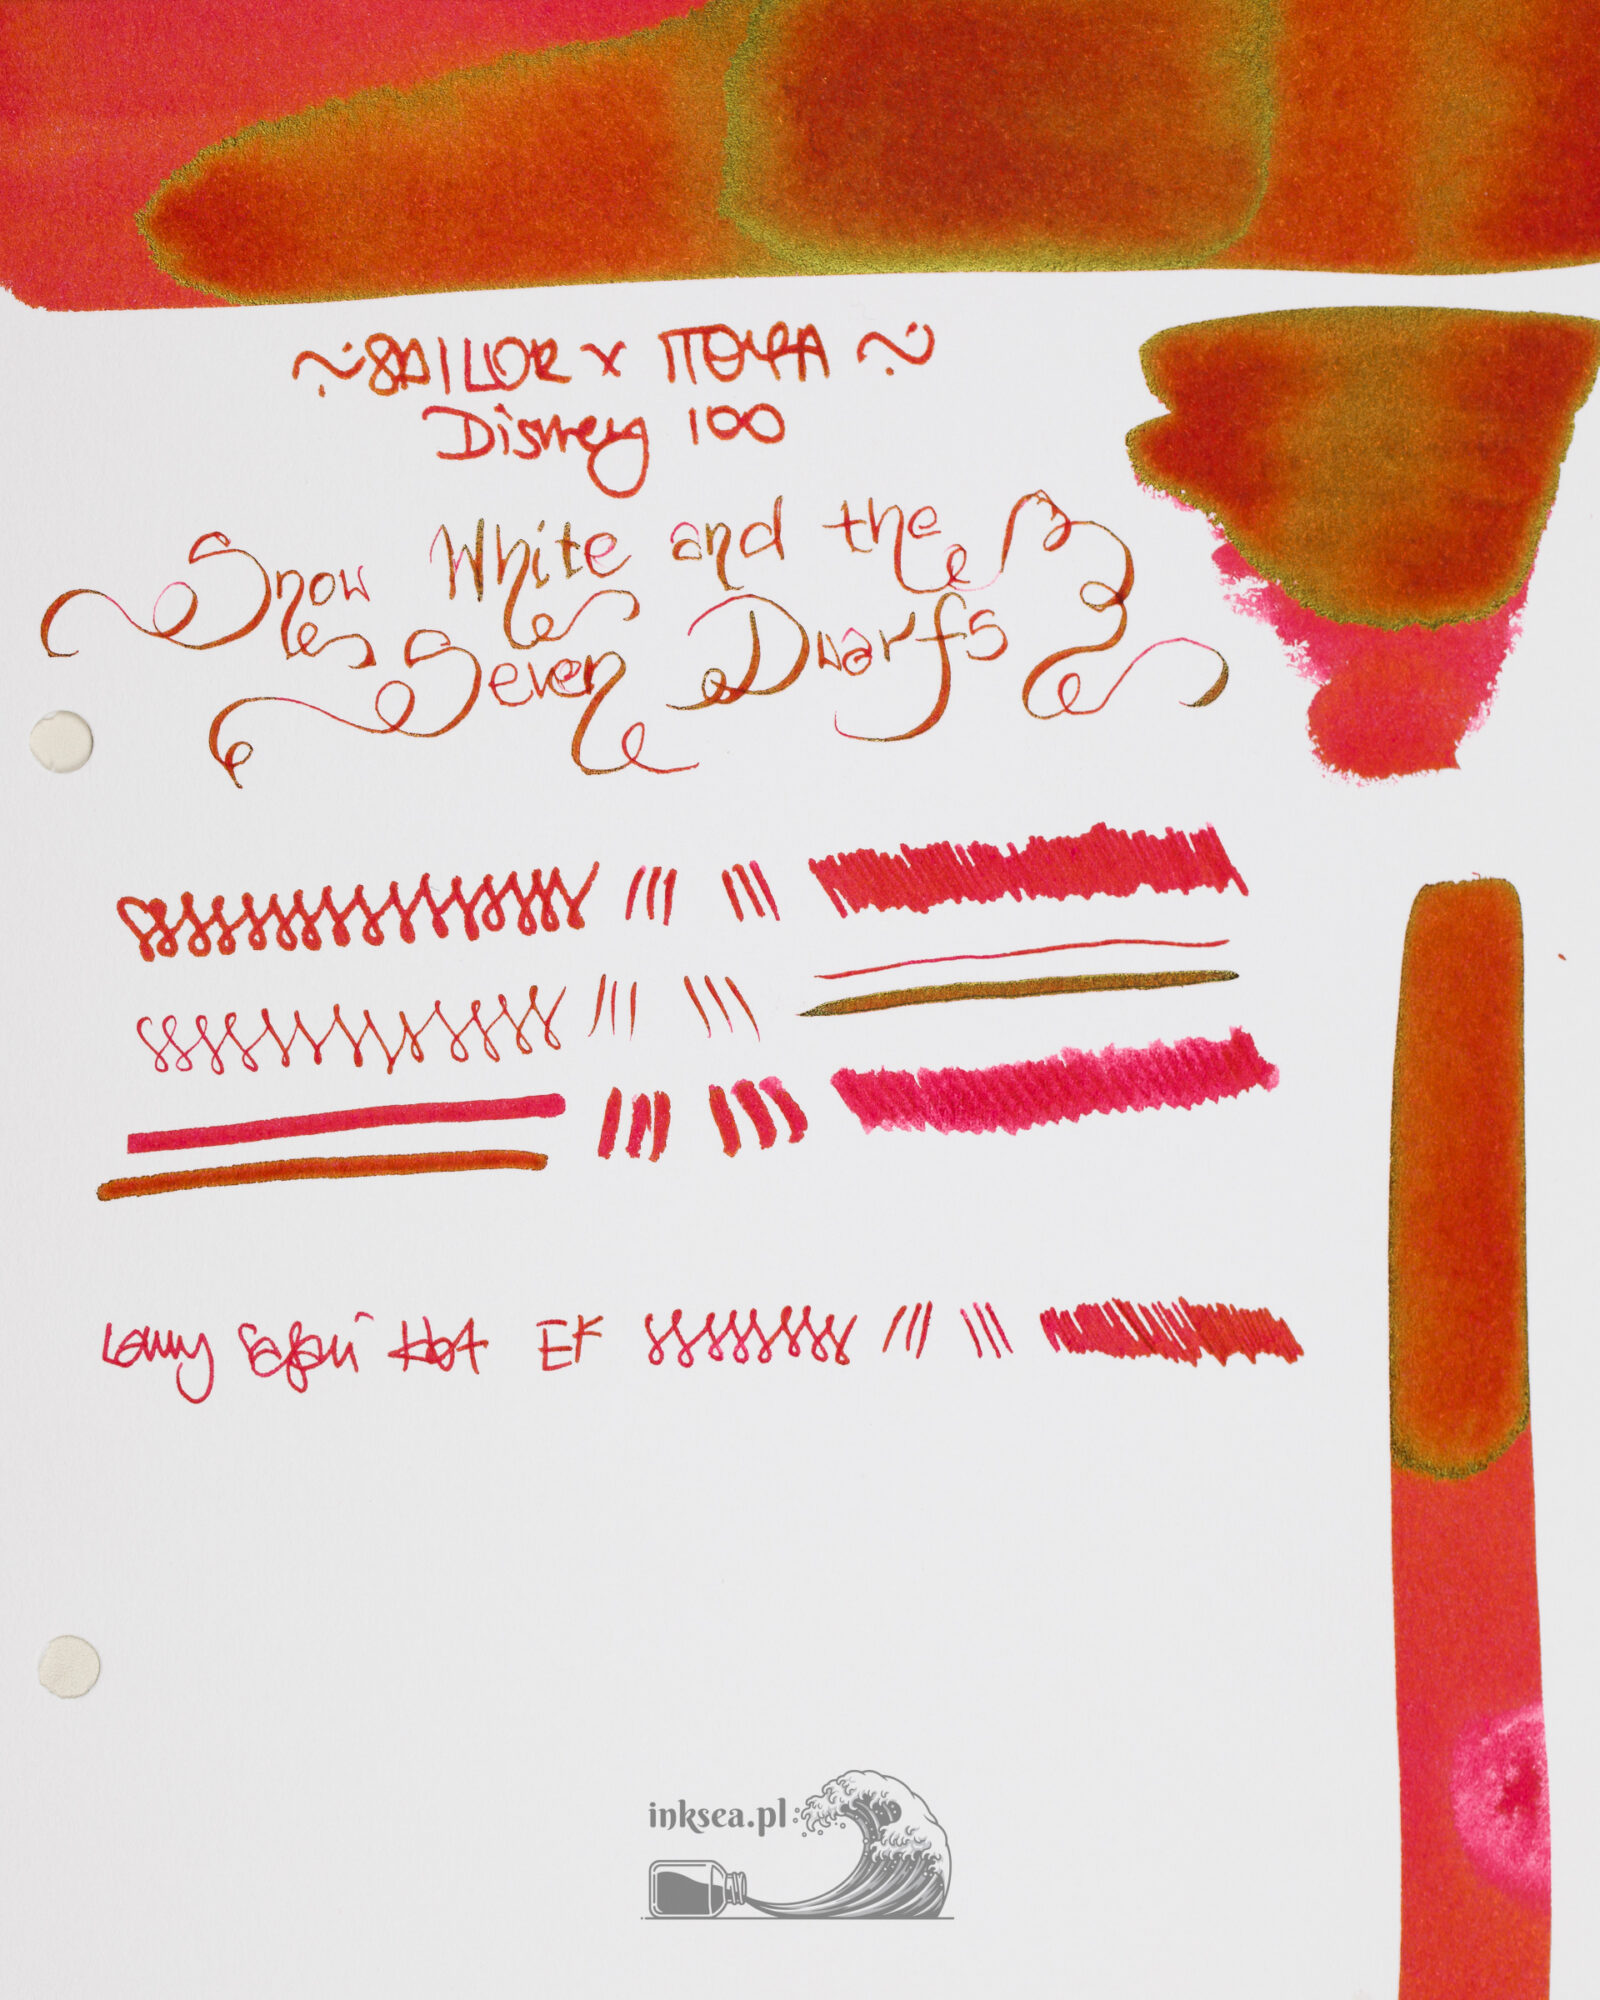 ~SAILOR x ITOYA~
Disney 100
Snow White and the
Seven Dwarfs
Lamy Safari Hot EF
inksea.pl